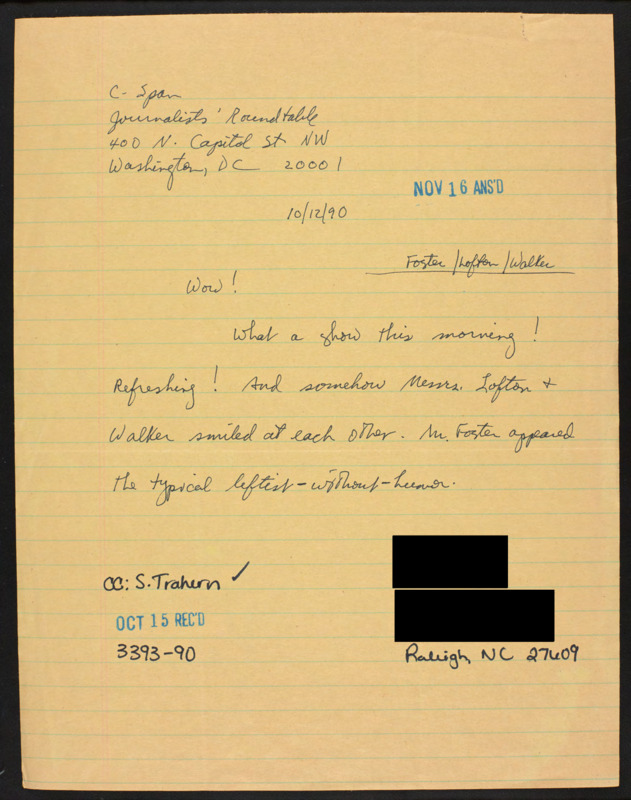 C-Span
Journalists' Roundtable
400 N. Capitol St NW
Washington, DC 20001
NOV 16 ANS'D
10/12/90
Foster/Lofton/Walker
Wow!
What a show this morning!
Refreshing! And somehow Messrs. Lofton +
Walker smiled at each other. Mr. Foster appeared
the typical leftist-without-humor.
CC: S. Trahern ✓
OCT 15 REC'D
3393-90
Raleigh, NC 27609